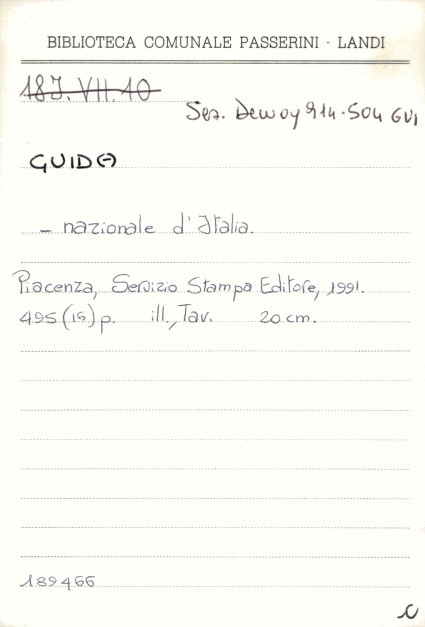 BIBLIOTECA COMUNALE PASSERINI - LANDI
18J.VII.10
Sez. Dewey 914.504 GUI
GUIDA
- nazionale d'Italia.
Piacenza, Servizio Stampa Editore, 1991.
495 (16) p. ill., Tav. 20 cm.
189466